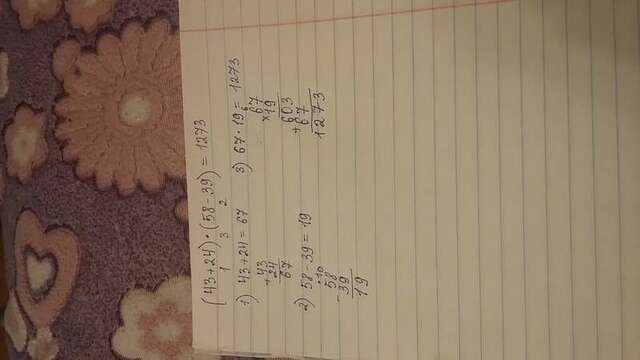 (43+24)·(58-39)=1273
1 3 2
1) 43+24=67
+43
24
67
2) 58-39=19
·10
-58
39
19
3) 67·19=1273
6
67
×19
603
+67
1273